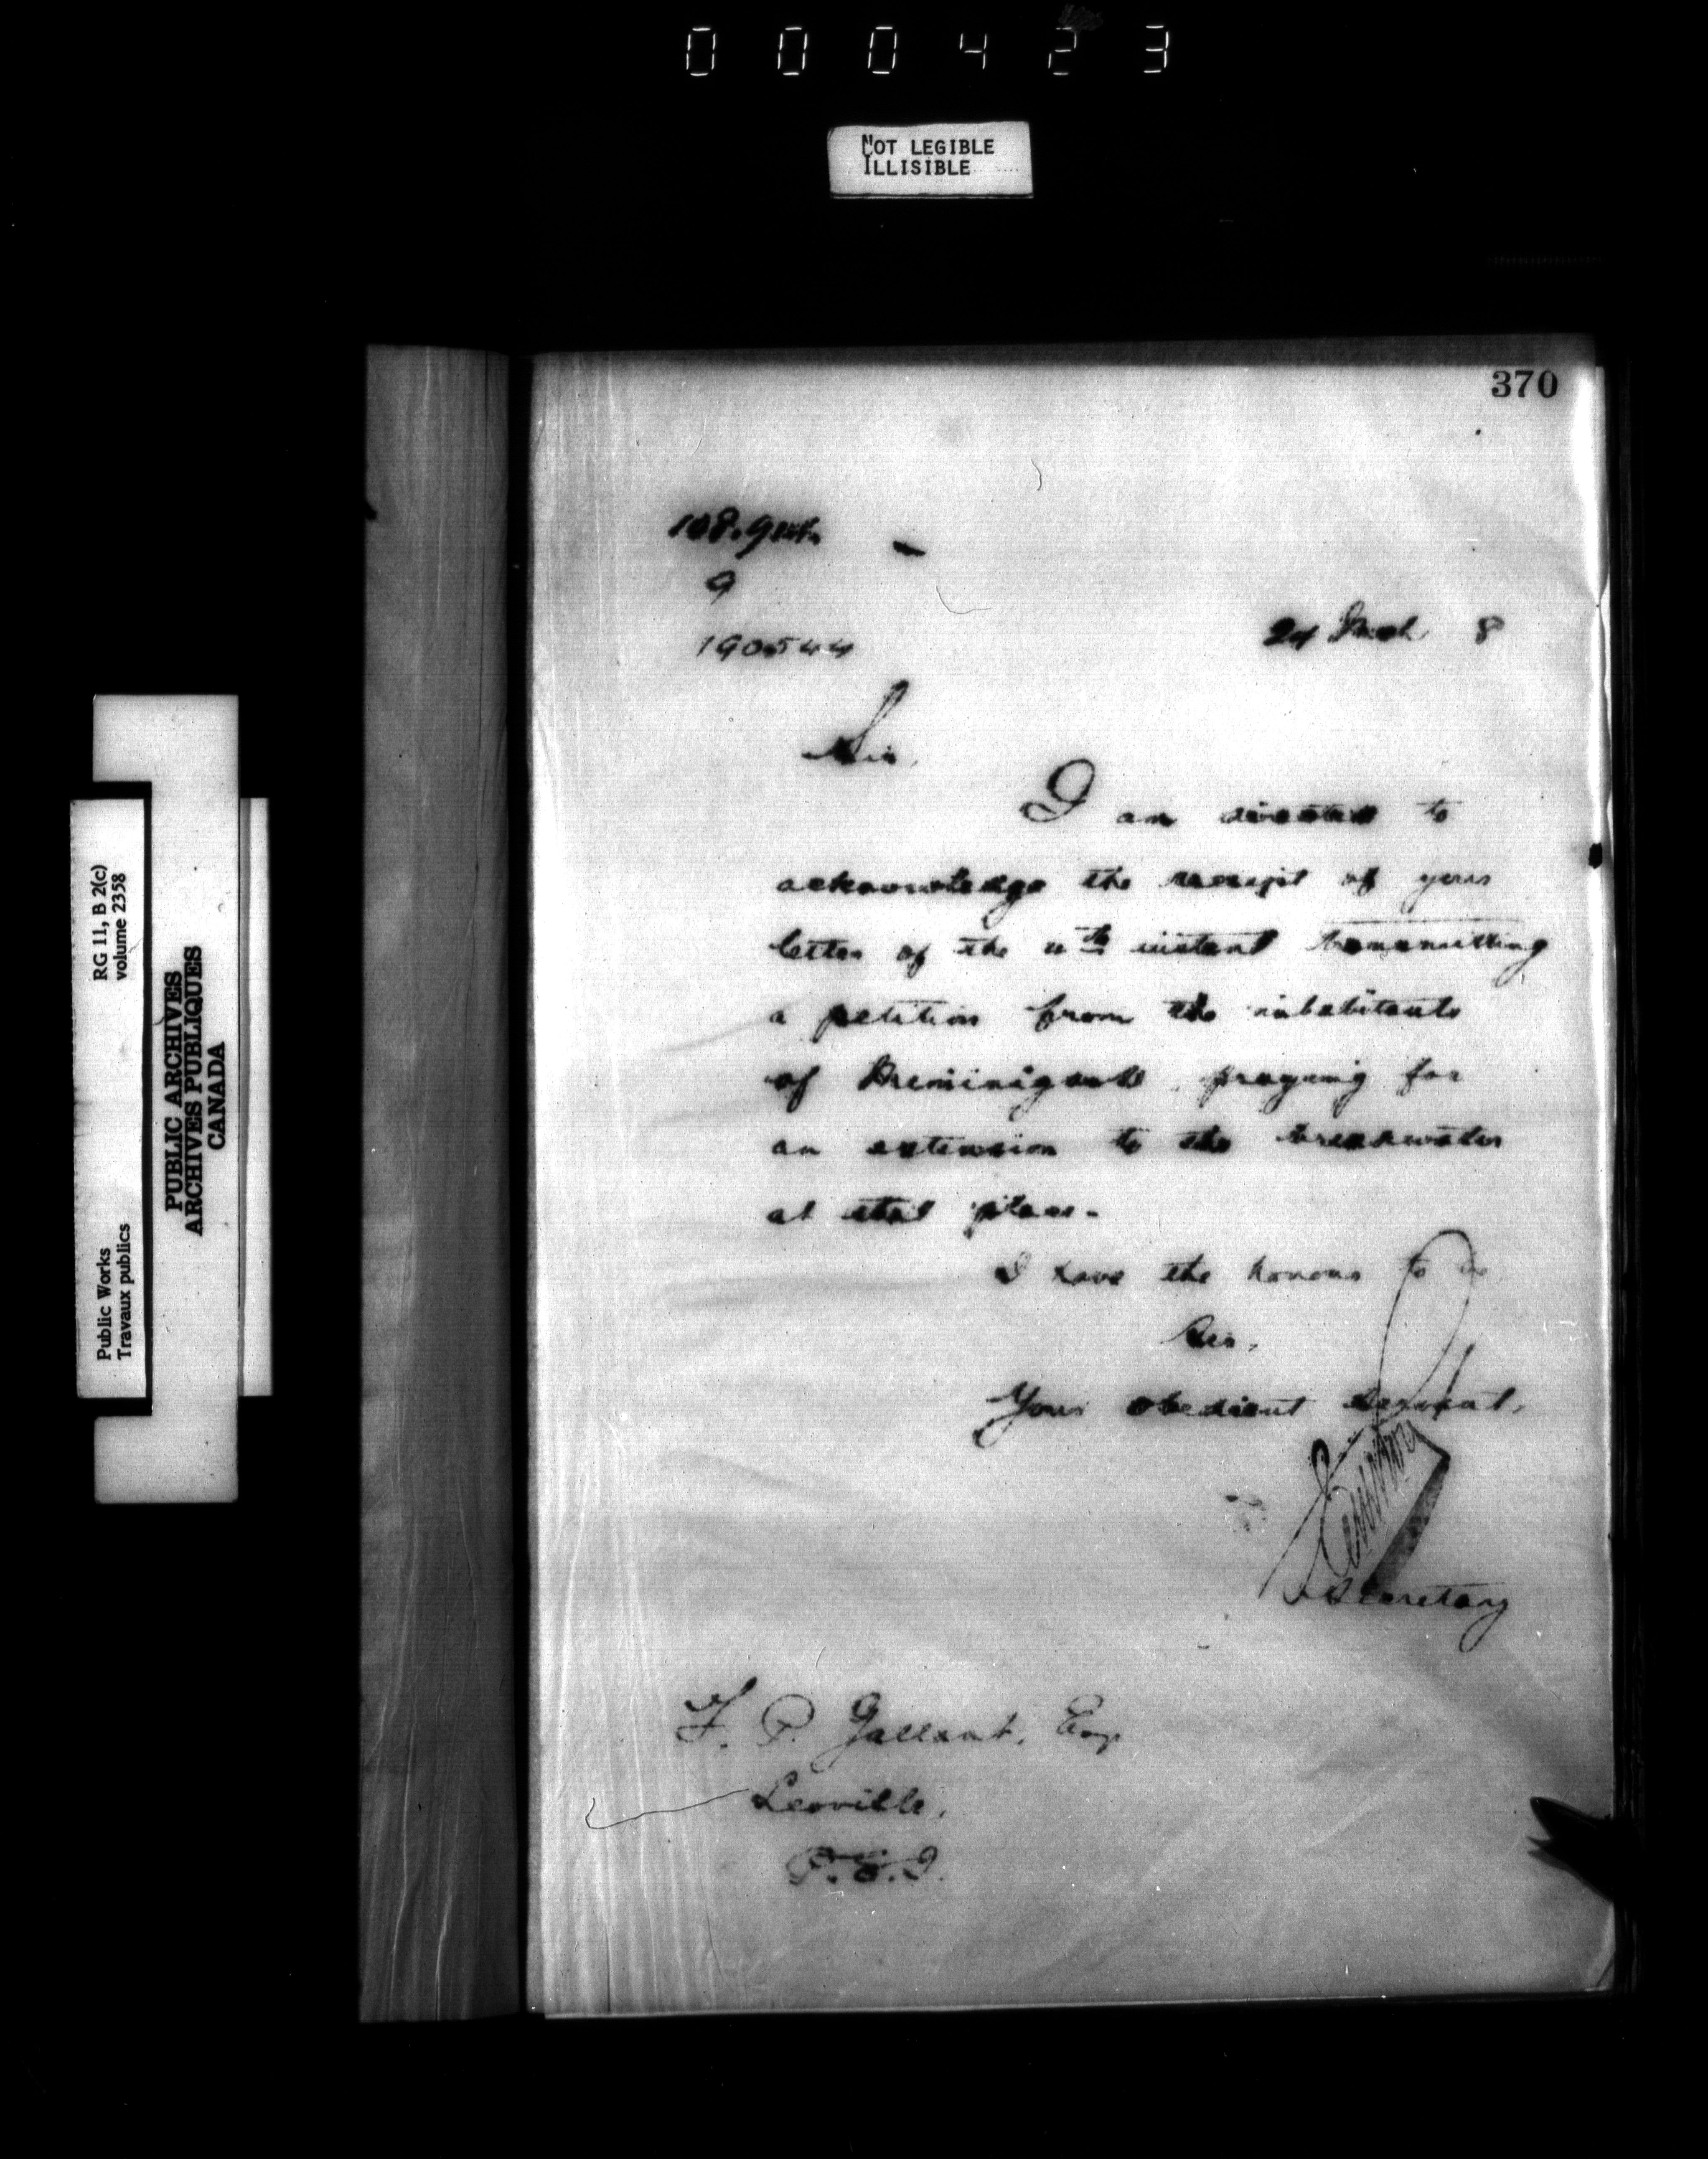 000423
NOT LEGIBLE
ILLISIBLE
370
9
190544
24 8
Sir,
I am directed to
acknowledge the receipt of your
letter of the 11th instant transmitting
a petition from the inhabitants
of praying for
an extension to the breakwater
at that place.
I have the honour to be
Sir,
Your obedient servant,
Secretary
F. P. Gallant, Esq
Leoville,
P.E.I.
RG 11, B 2(c)
volume 2358
Public Works
Travaux publics
PUBLIC ARCHIVES
ARCHIVES PUBLIQUES
CANADA